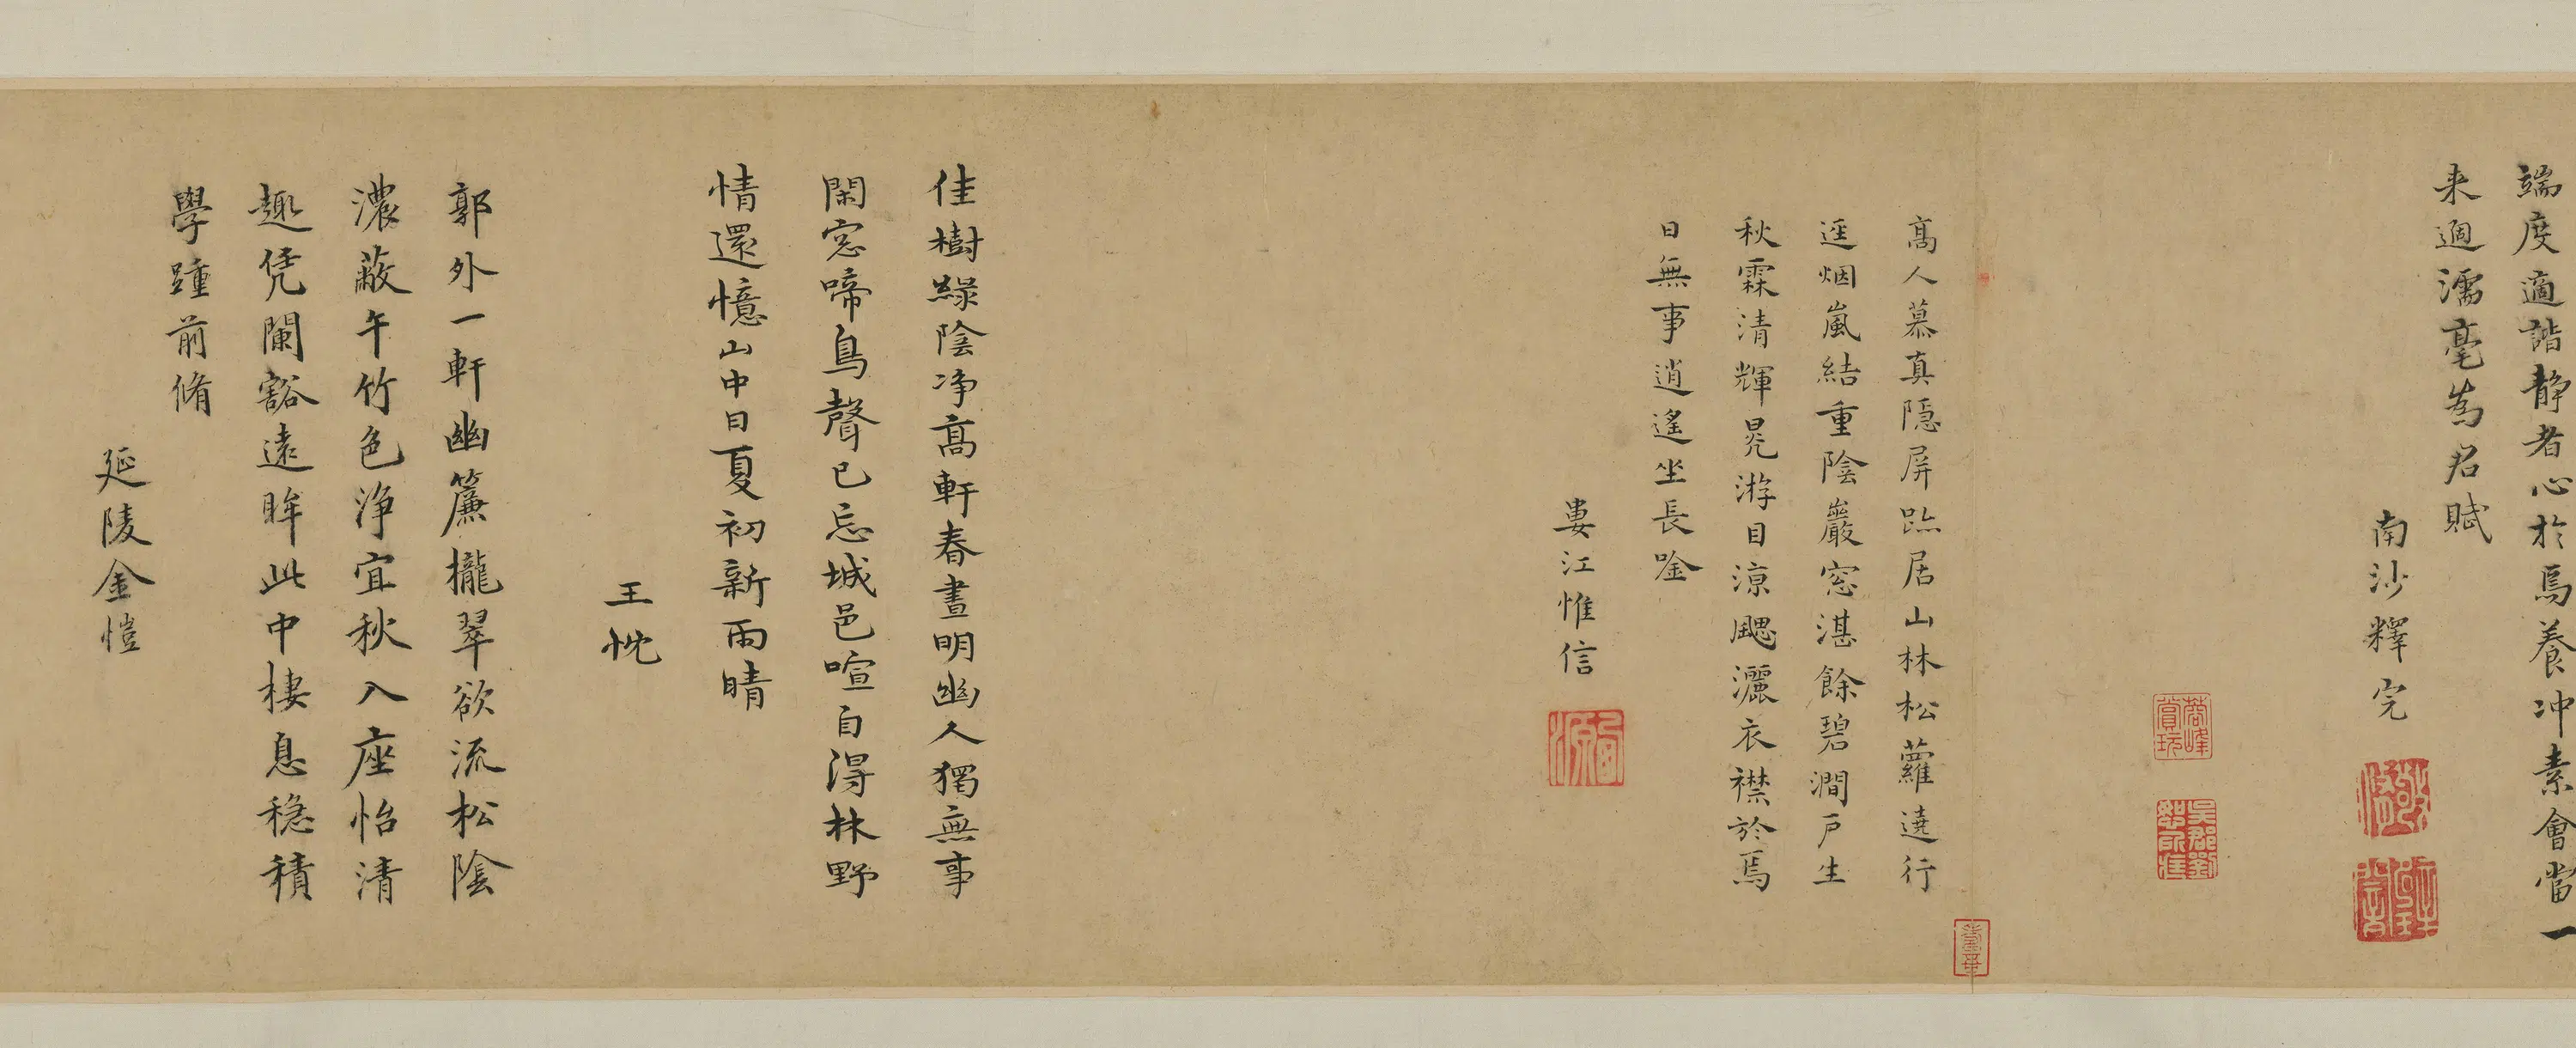 端度適諧静者心於焉養冲素會當一
来過濡毫為君賦
南沙釋完
蓉峰賞玩
高人慕真隱屏跡居山林松蘿遶行
逕烟嵐結重陰巖窓湛餘碧澗戸生
秋霖清輝晃游目涼颸灑衣襟於焉
日無事逍遙坐長唫
婁江惟信
佳樹緑陰净高軒春晝明幽人獨無事
閑窓啼鳥聲已忘城邑喧自得林野
情還憶山中日夏初新雨晴
王忱
郭外一軒幽簾櫳翠欲流松陰
濃蔽午竹色浄宜秋入座怡清
趣凭闌豁遠眸此中棲息穏積
學踵前脩
延陵金愷